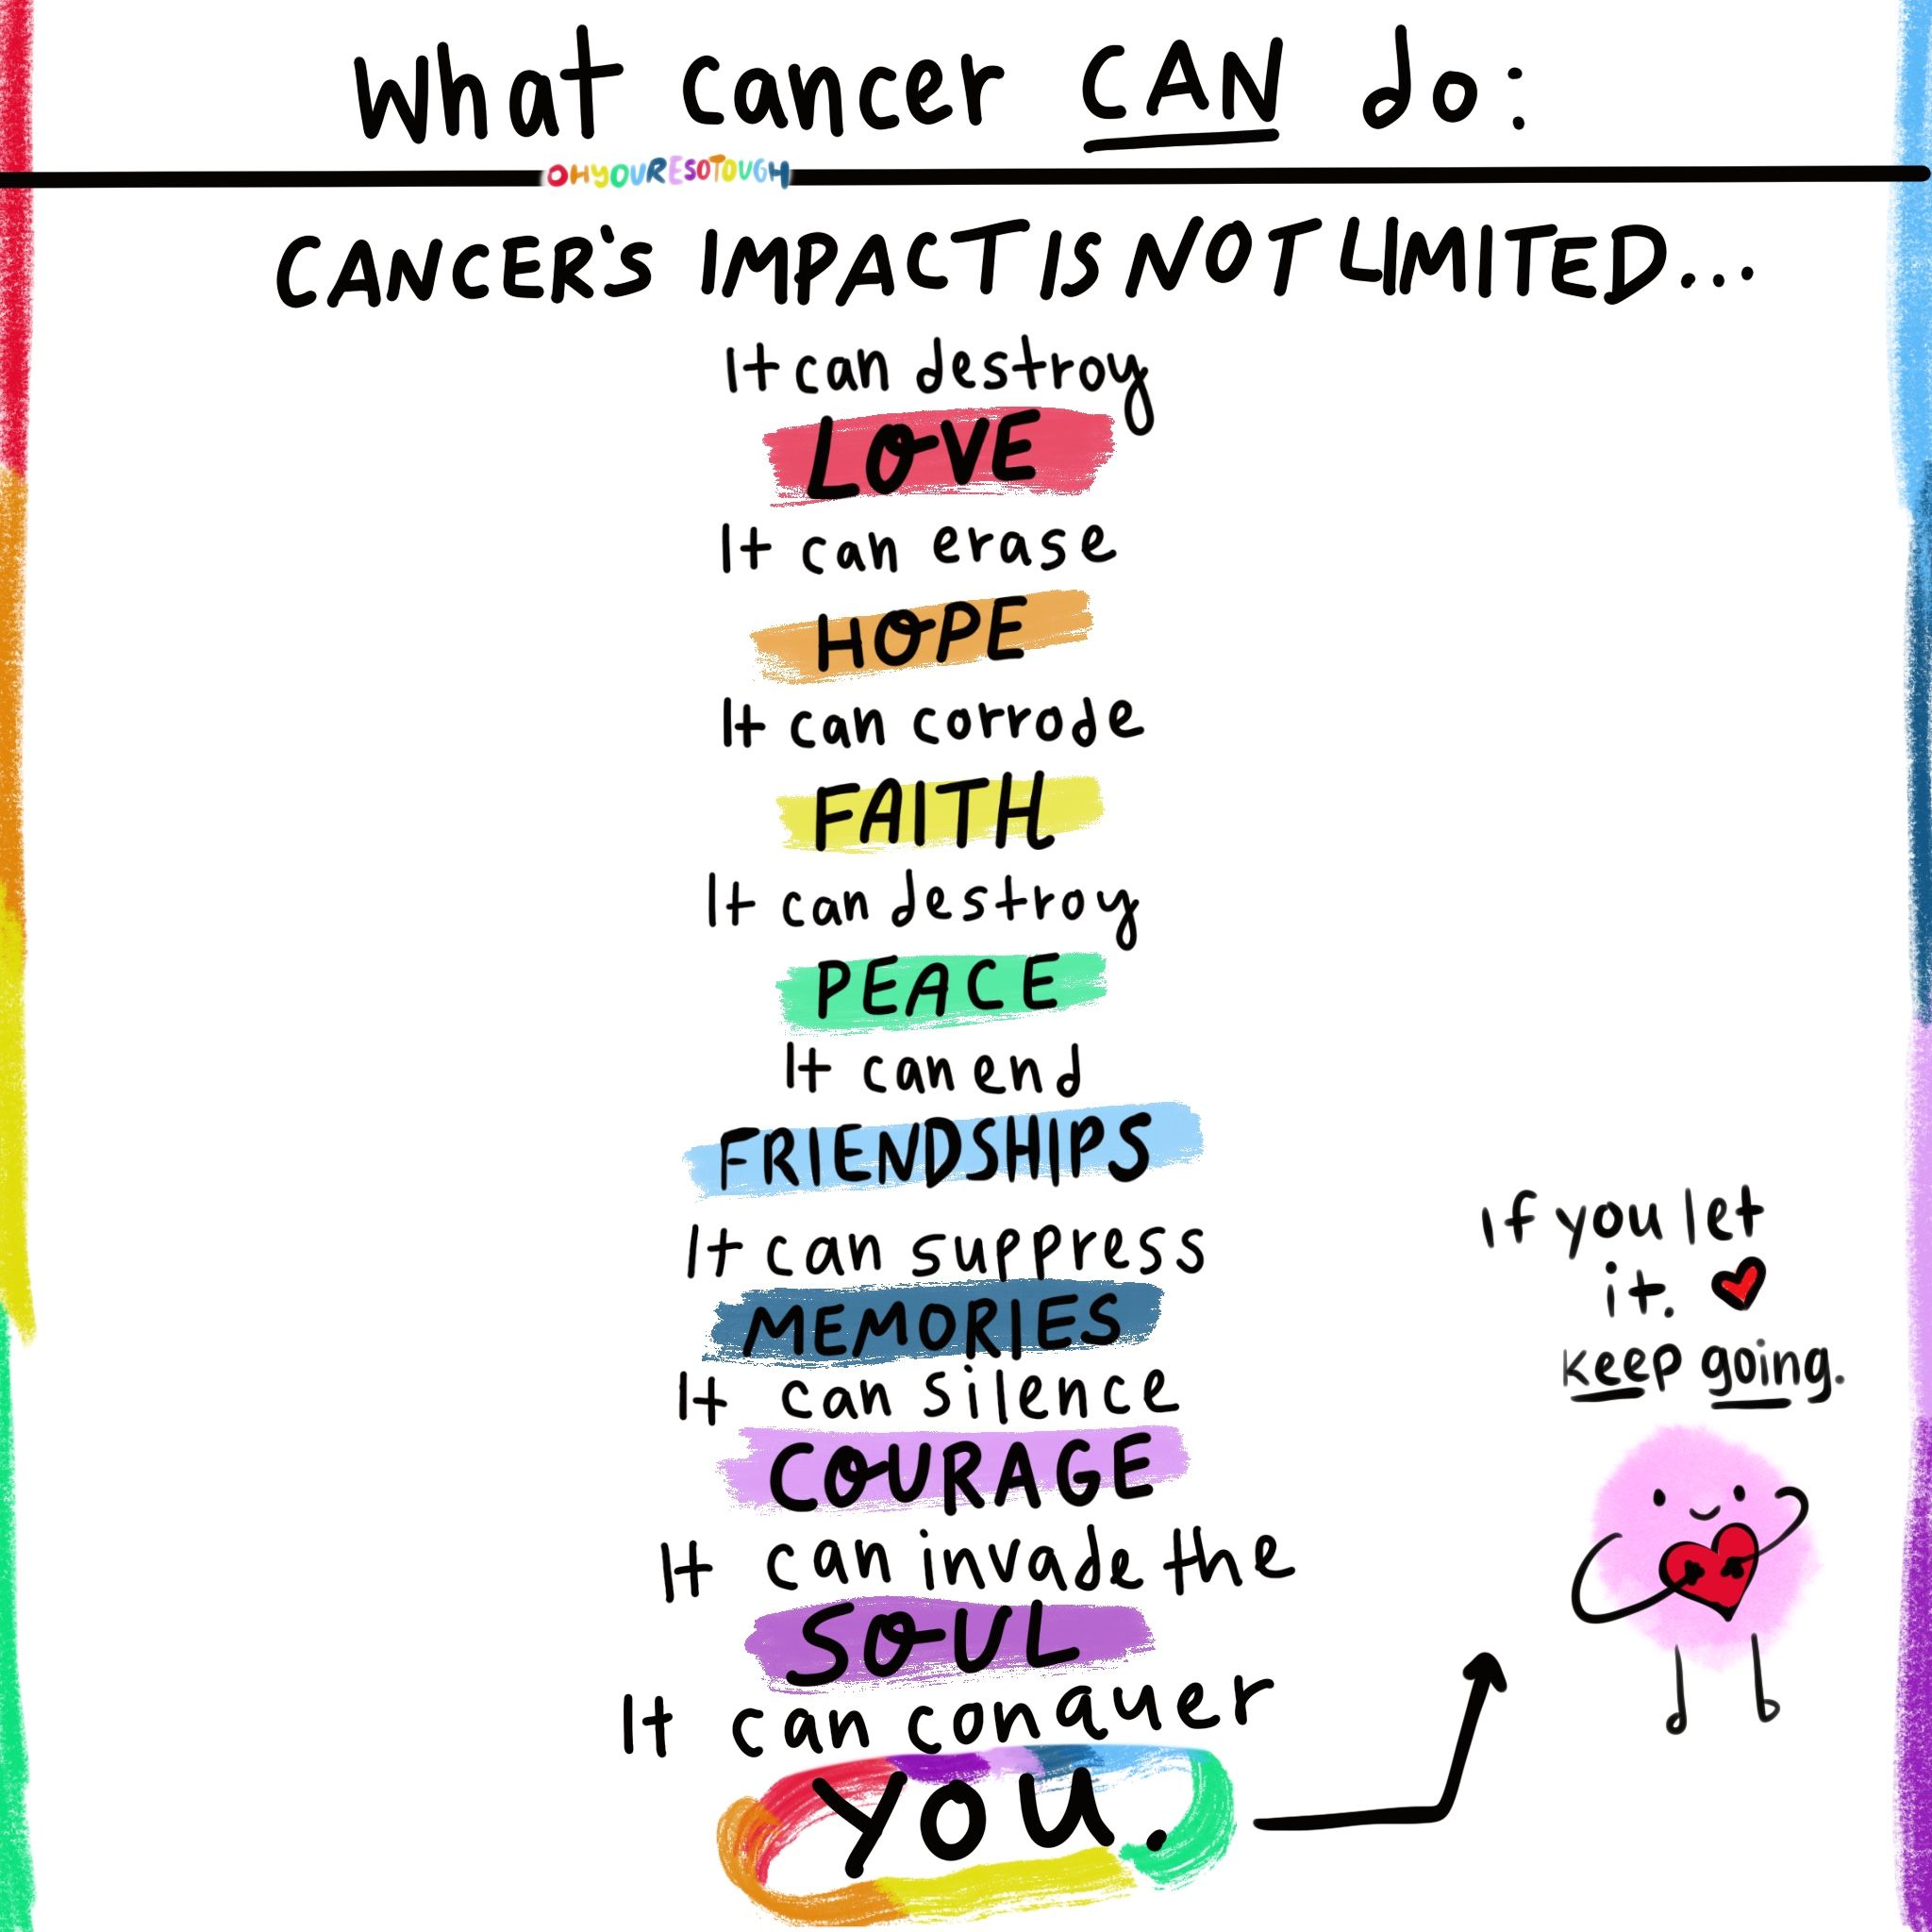 What cancer CAN do:
OHYOURESOTOUGH
CANCER'S IMPACT IS NOT LIMITED...
It can destroy
LOVE
It can erase
HOPE
It can corrode
FAITH
It can destroy
PEACE
It can end
FRIENDSHIPS
It can suppress
MEMORIES
It can silence
COURAGE
It can invade the
SOUL
It can conquer
YOU.
If you let
it.
keep going.